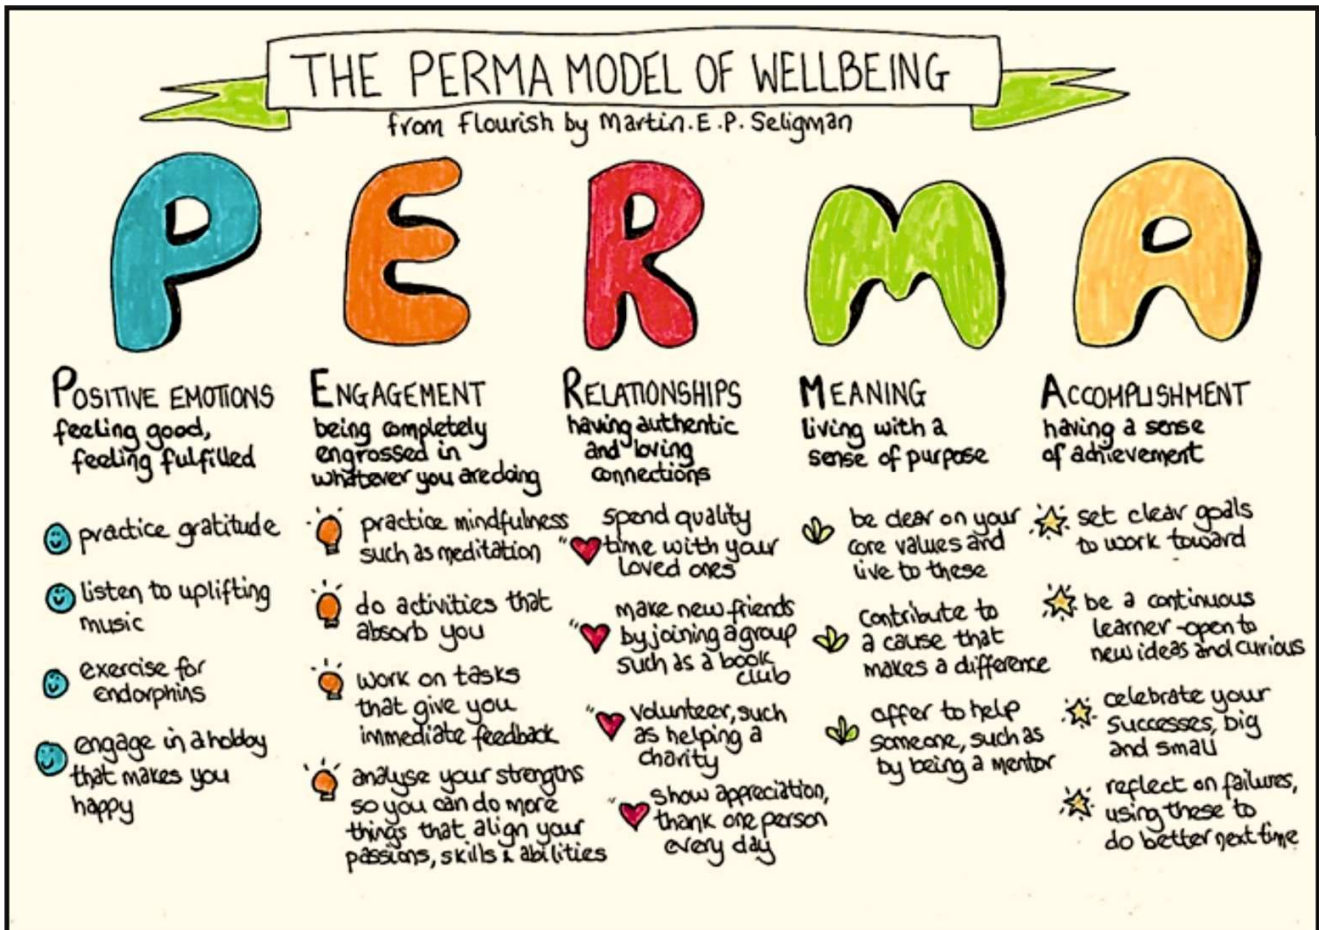 THE PERMA MODEL OF WELLBEING
from Flourish by Martin.E.P. Seligman
PERMA
POSITIVE EMOTIONS
feeling good,
feeling fulfilled
practice gratitude
listen to uplifting
music
exercise for
endorphins
engage in a hobby
that makes you
happy
ENGAGEMENT
being completely
engrossed in
whatever you are doing
practice mindfulness
such as meditation
do activities that
absorb you
work on tasks
that give you
immediate feedback
analyse your strengths
so you can do more
things that align your
passions, skills & abilities
RELATIONSHIPS
having authentic
and loving
connections
spend quality
time with your
loved ones
make new friends
by joining a group
such as a book
club
volunteer, such
as helping a
charity
show appreciation,
thank one person
every day
MEANING
living with a
sense of purpose
be clear on your
core values and
live to these
contribute to
a cause that
makes a difference
offer to help
someone, such as
by being a mentor
ACCOMPLISHMENT
having a sense
of achievement
set clear goals
to work toward
be a continuous
learner - open to
new ideas and curious
celebrate your
successes, big
and small
reflect on failures,
using these to
do better next time